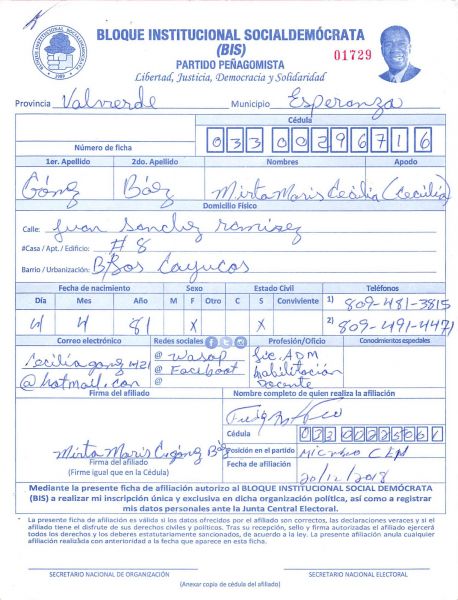 BLOQUE INSTITUCIONAL SOCIALDEMÓCRATA
(BIS)
PARTIDO PEÑAGOMISTA
Libertad, Justicia, Democracia y Solidaridad
01729
Provincia Valverde Municipio Esperanza
Cédula
Número de ficha 03300296716
1er. Apellido 2do. Apellido Nombres Apodo
Góng Báez Mirta Maris Cecilia (Cecilia)
Domicilio Físico
Calle: Juan Sanchez Ramirez
#Casa / Apt. / Edificio: # 8
Barrio / Urbanización: B/Los Cayucos
Fecha de nacimiento Sexo Estado Civil Teléfonos
Día Mes Año M F Otro C S Conviviente 1) 809-481-3815
4 4 81 X X 2) 809-491-4471
Correo electrónico Redes sociales Profesión/Oficio Conodmientos especiales
Ceciliagong4421 @ Wasap Lic. ADM
@hotmail.con @ Faciboot habilitación
@ Docente
Firma del afiliado Nombre completo de quien realiza la afiliación
Cédula
Mirta Maris C. Góng Báez Posición en el partido Miembro CEN
Firma del afiliado
(Firme igual que en la Cédula) Fecha de afiliación 20/12/2018
Mediante la presente ficha de afiliación autorizo al BLOQUE INSTITUCIONAL SOCIAL DEMÓCRATA
(BIS) a realizar mi inscripción única y exclusiva en dicha organización política, así como a registrar
mis datos personales ante la Junta Central Electoral.
* La presente ficha de afiliación es válida si los datos ofrecidos por el afiliado son correctos, las declaraciones veraces y si el
afiliado tiene el disfrute de sus derechos civiles y políticos. Tras su recepción, sello y firma autorizadas el afiliado ejercerá
todos los derechos y los deberes estatutariamente sancionados, de acuerdo a la ley. La presente afiliación anula cualquier
afiliación realizada con anterioridad a la fecha que aparece en esta ficha.
SECRETARIO NACIONAL DE ORGANIZACIÓN SECRETARIO NACIONAL ELECTORAL
(Anexar copia de cédula del afiliado)